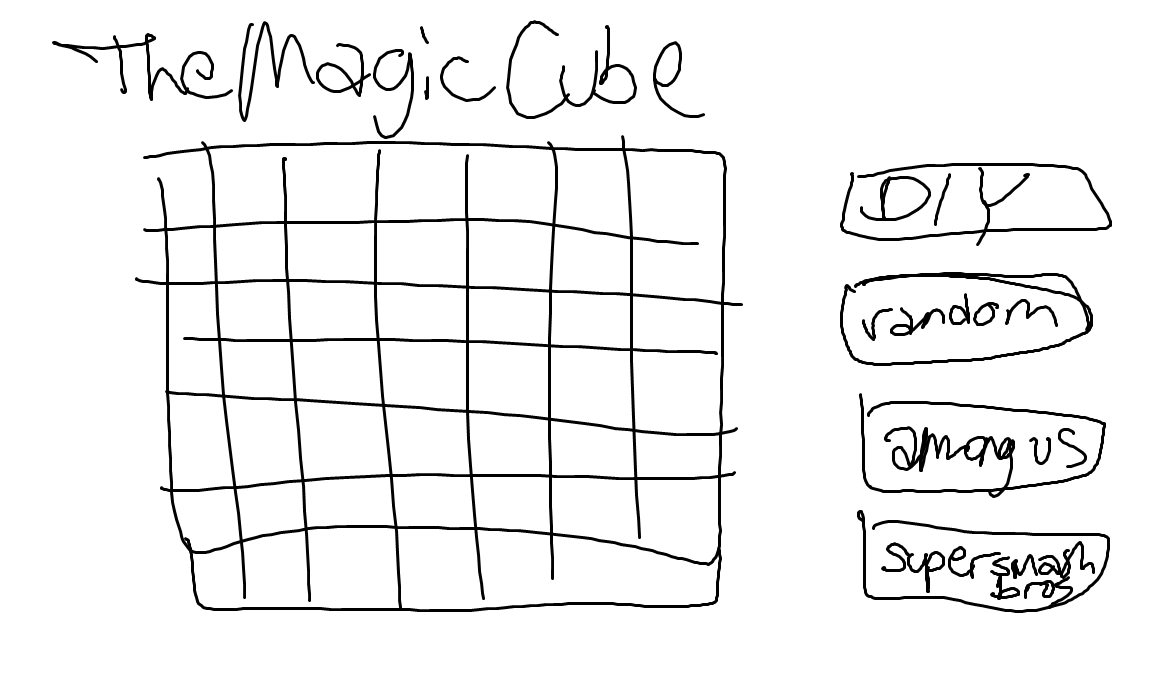 The Magic Cube
DIY
random
among us
super smash
bros